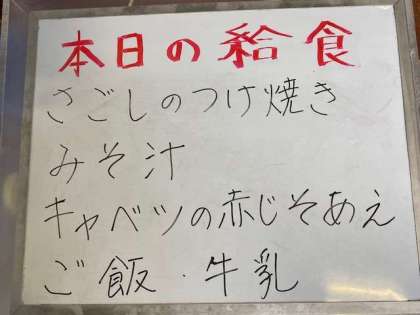 本日の給食
さごしのつけ焼き
みそ汁
キャベツの赤じそあえ
ご飯・牛乳